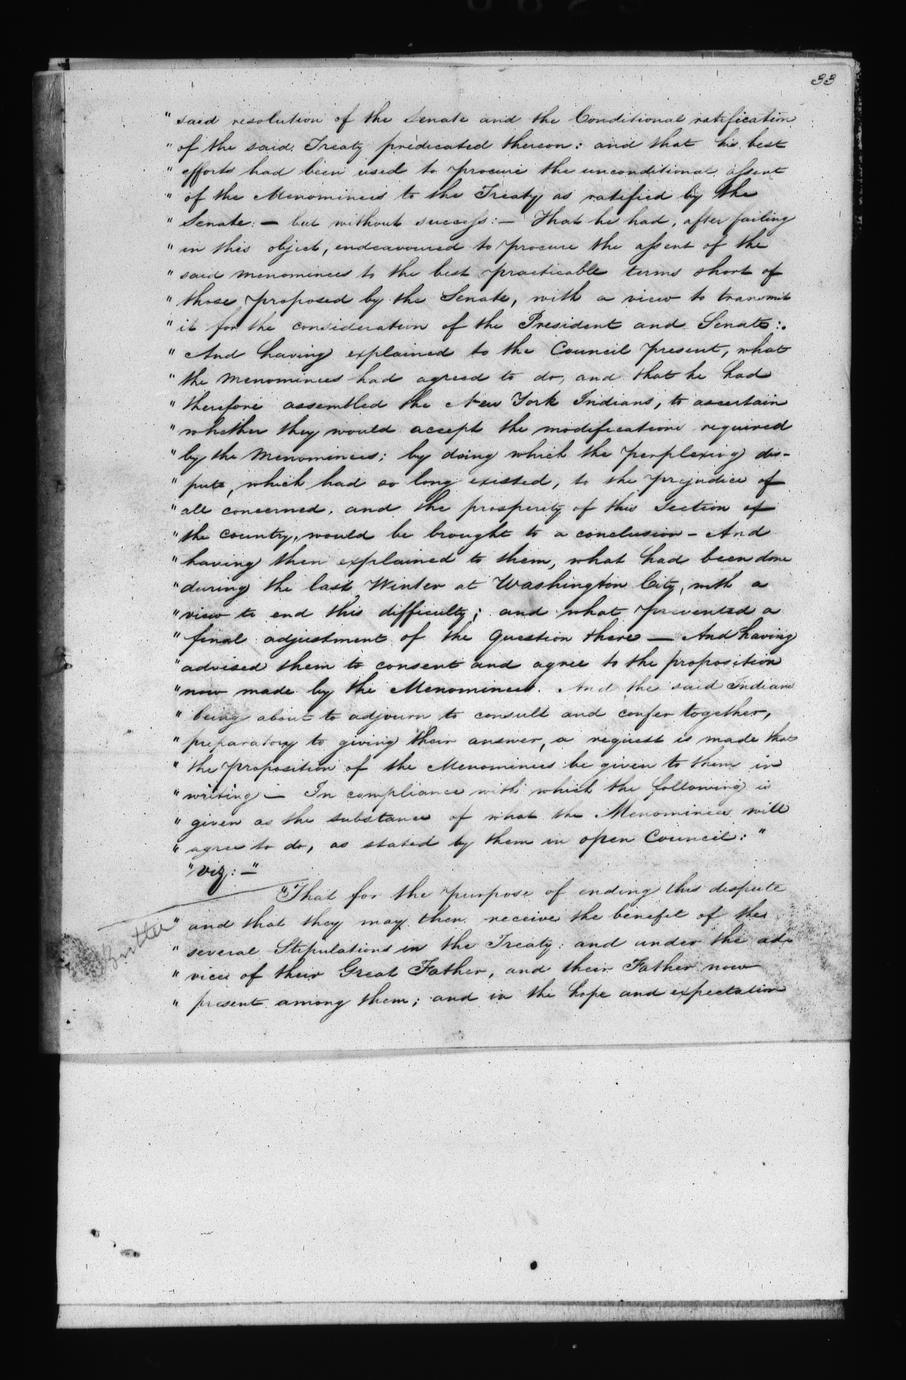 33
" said resolution of the Senate and the Conditional ratification
" of the said Treaty predicated thereon: and that his best
" efforts had been used to procure the unconditional assent
" of the Menominees to the Treaty as ratified by the
" Senate: — but without success: — That he had, after failing
" in this object, endeavoured to procure the assent of the
" said menominees to the best practicable terms short of
" those proposed by the Senate, with a view to transmit
" it for the consideration of the President and Senate:.
" And having explained to the Council present, what
" the Menominees had agreed to do, and that he had
" therefore assembled the New York Indians, to ascertain
" whether they would accept the modifications required
" by the Menominees; by doing which the perplexing dis-
" pute, which had so long existed, to the prejudice of
" all concerned, and the prosperity of this Section of
" the Country, would be brought to a conclusion - And
" having then explained to them, what had been done
" during the last Winter at Washington City, with a
" view to end this difficulty; and what prevented a
" final adjustment of the Question there — And having
" advised them to consent and agree to the proposition
" now made by the Menominees. And the said Indians
" being about to adjourn to consult and confer together,
" preparatory to giving their answer, a request is made that
" the proposition of the Menominees be given to them in
" writing — In compliance with which the following is
" given as the substance of what the Menominees will
" agree to do, as stated by them in open Council: "
" viz: — "
"That for the purpose of ending this dispute
" and that they may then receive the benefit of the
" several Stipulations in the Treaty: and under the ad-
" vices of their Great Father, and their Father now
" present among them; and in the hope and expectation